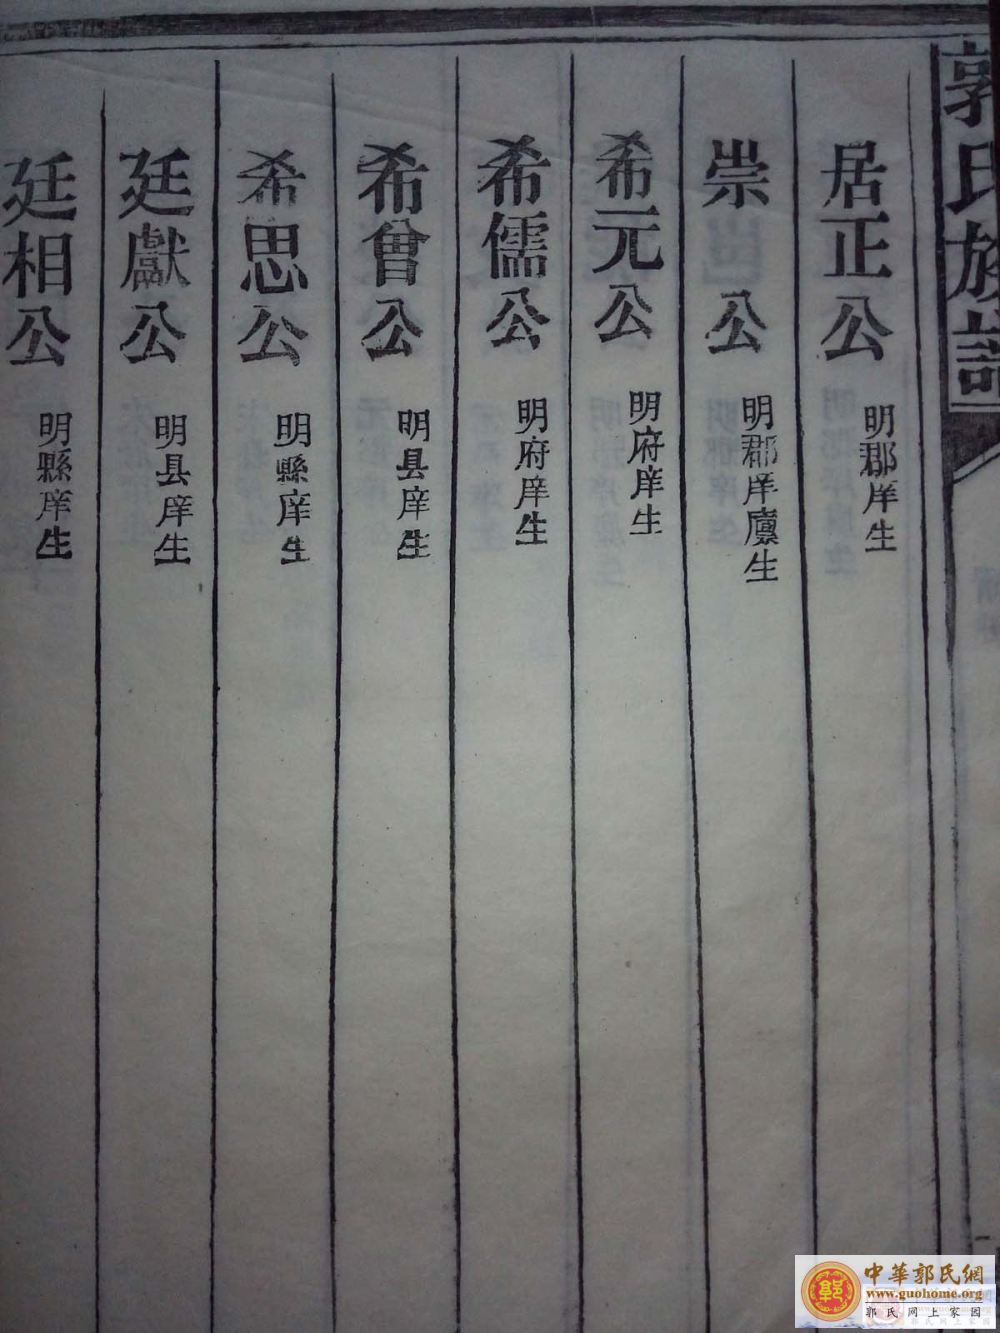 郭氏族譜
居正公 明郡庠生
崇公 明郡庠廩生
希元公 明府庠生
希儒公 明府庠生
希曾公 明县庠生
希思公 明縣庠生
廷獻公 明县庠生
廷相公 明縣庠生
中華郭氏網
www.guohome.org
郭氏网上家园